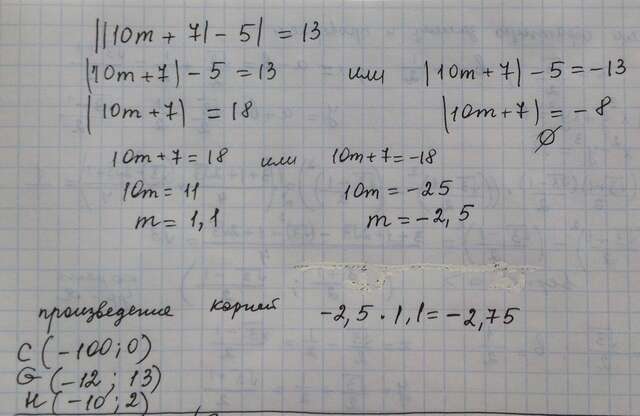 ||10m + 7| - 5| = 13
|10m + 7| - 5 = 13 или |10m + 7| - 5 = -13
|10m + 7| = 18 |10m + 7| = -8
∅
10m + 7 = 18 или 10m + 7 = -18
10m = 11 10m = -25
m = 1,1 m = -2,5
произведение корней -2,5 · 1,1 = -2,75
C (-100; 0)
G (-12; 13)
H (-10; 2)